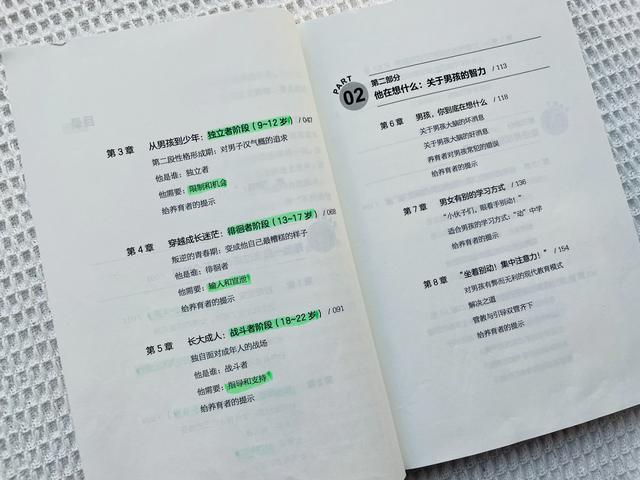 第3章 从男孩到少年：独立者阶段（9-12岁）/ 047
第二段性格形成期：对男子汉气概的追求
他是谁：独立者
他需要：限制和机会
给养育者的提示
第4章 穿越成长迷茫：徘徊者阶段（13~17岁）/ 068
叛逆的青春期：变成他自己最糟糕的样子
他是谁：徘徊者
他需要：输入和宣泄
给养育者的提示
第5章 长大成人：战斗者阶段（18~22岁）/ 091
独自面对成年人的战场
他是谁：战斗者
他需要：指导和支持
给养育者的提示
PART 02
第二部分
他在想什么：关于男孩的智力 / 113
第6章 男孩，你到底在想什么 / 118
关于男孩大脑的坏消息
关于男孩大脑的好消息
养育者对男孩常犯的错误
给养育者的提示
第7章 男女有别的学习方式 / 136
“小伙子们，眼看手别动！”
适合男孩的学习方式：“动”中学
给养育者的提示
第8章 “坐着别动！集中注意力！” / 154
对男孩有弊而无利的现代教育模式
解决之道
管教与引导双管齐下
给养育者的提示